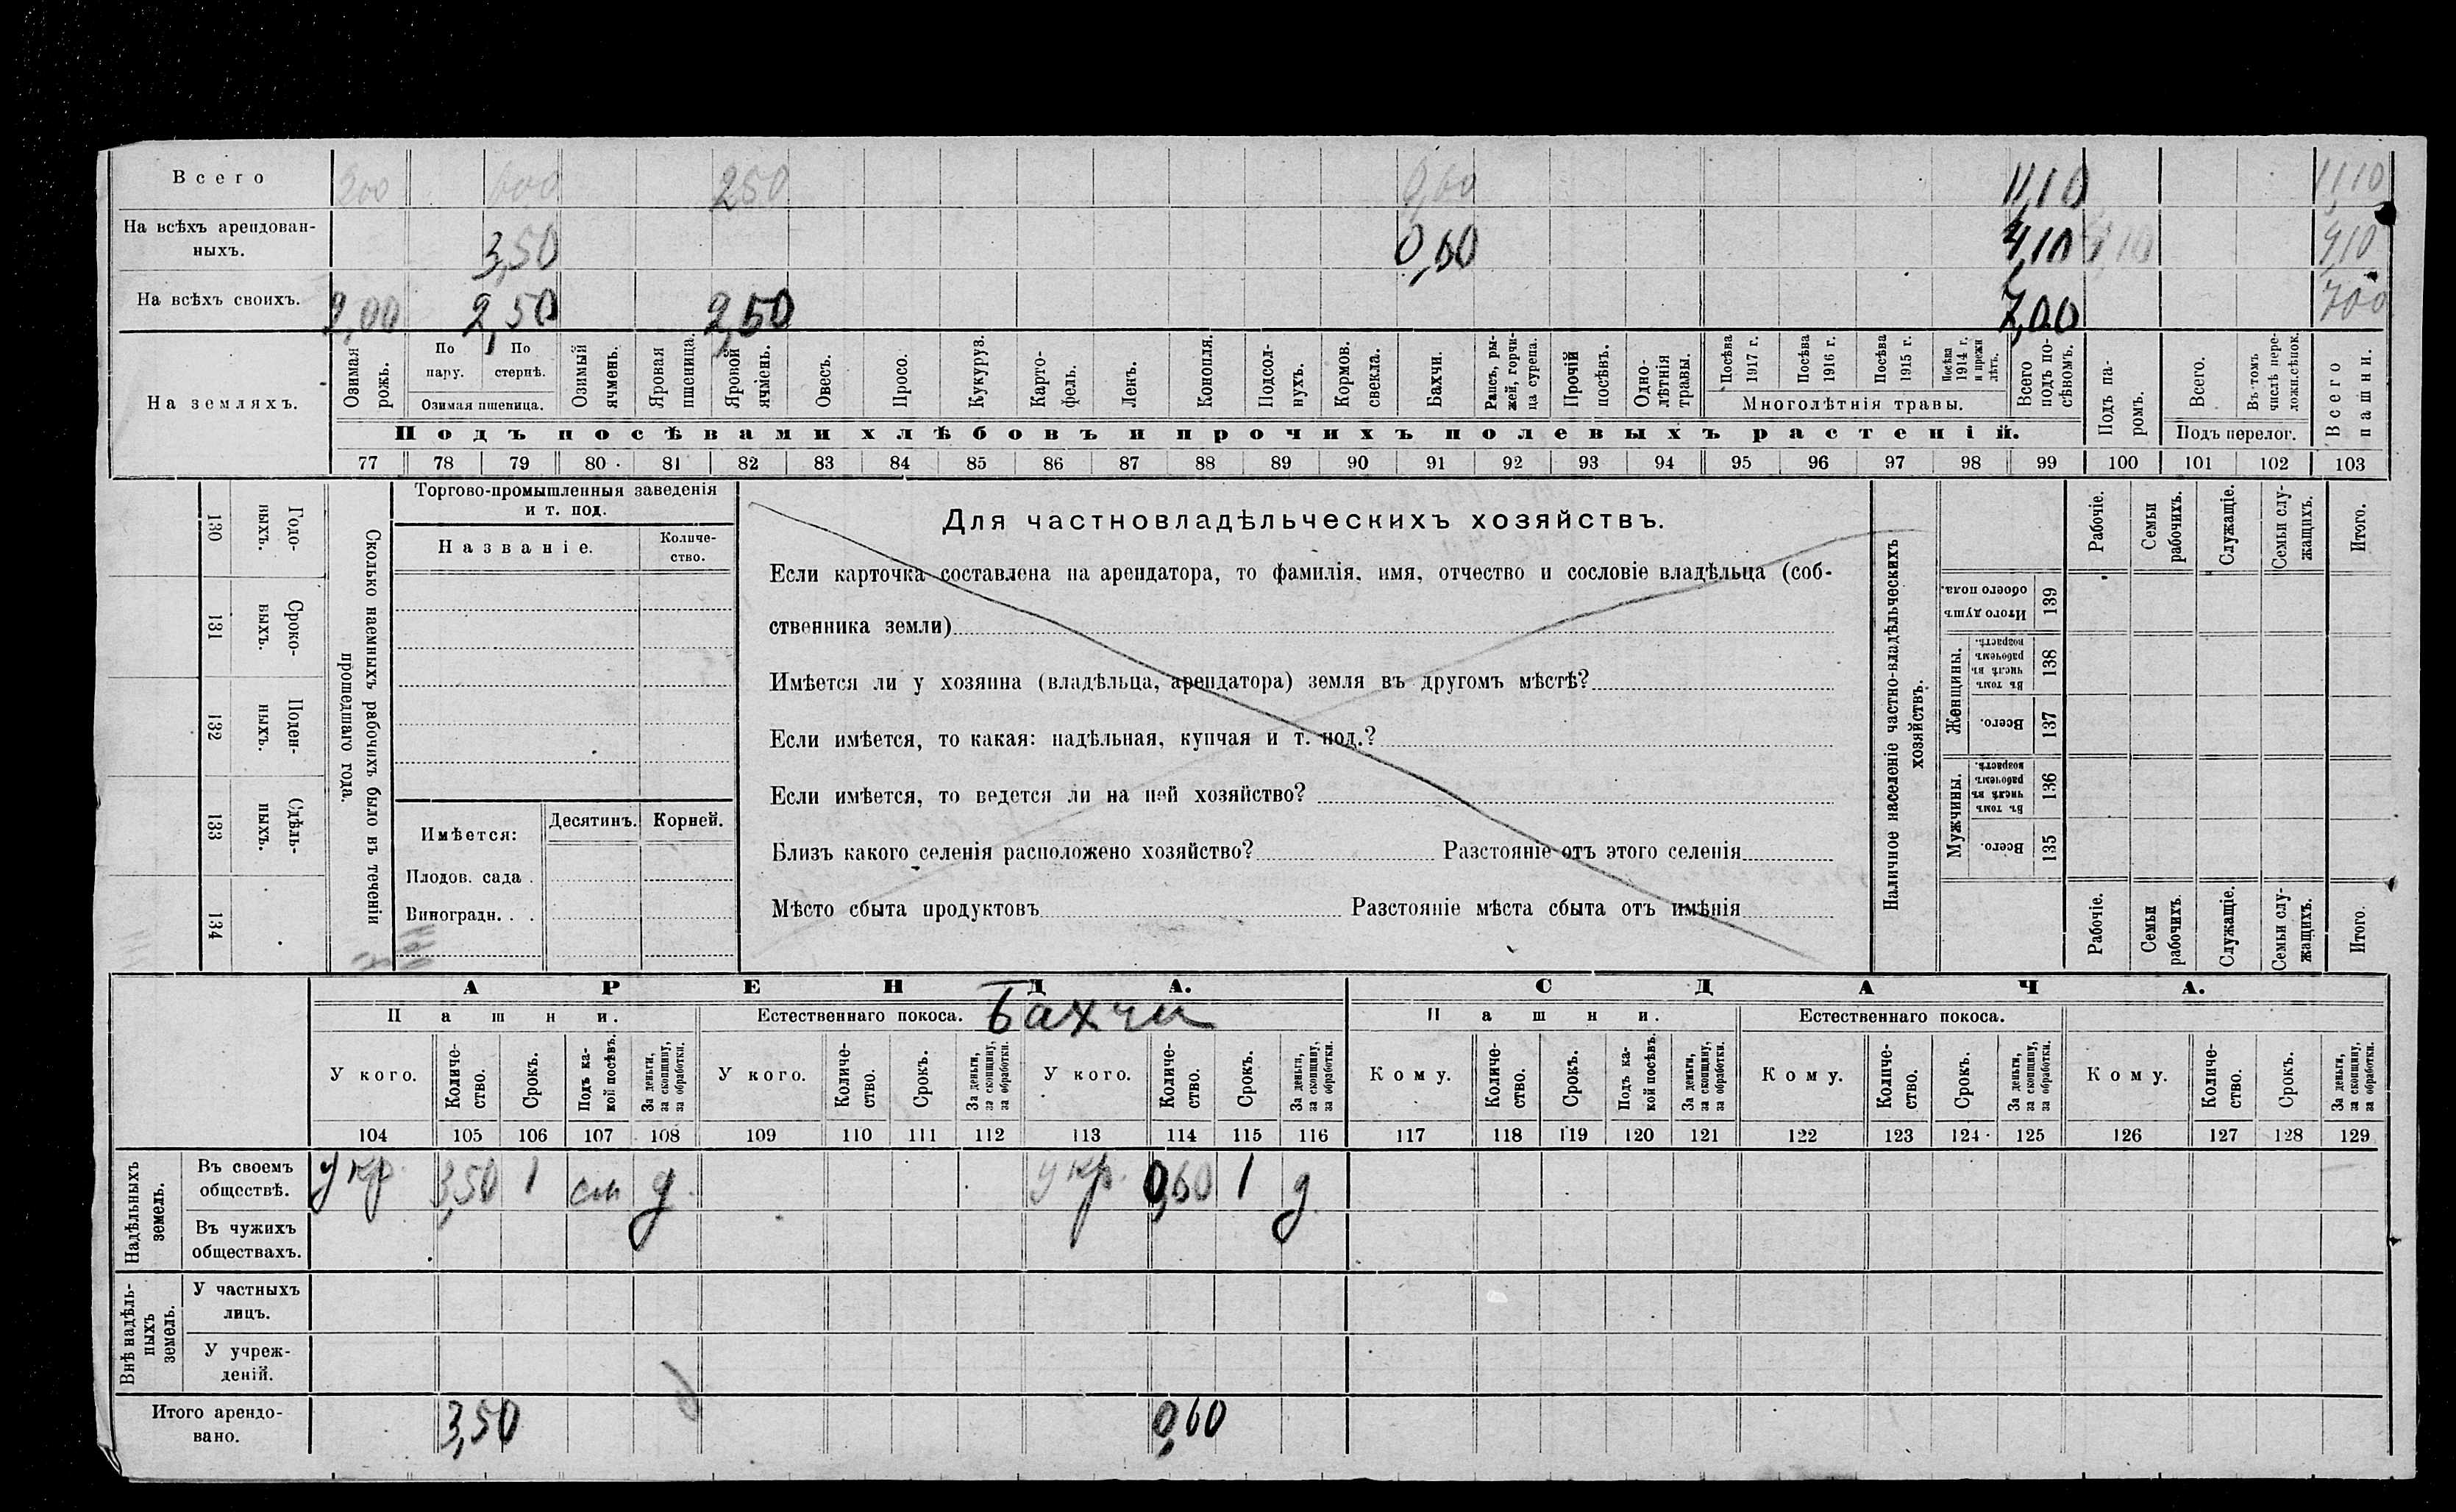 Всего 200 600 250 0,60 11,10 11,10
На всѣхъ арендован-
ныхъ. 3,50 0,60 4,10 4,10
На всѣхъ своихъ. 2,00 2,50 2,50 7,00 700
На земляхъ.
Озимая рожь.
По пару.
По стернѣ.
Озимая пшеница.
Озимый ячмень.
Яровая пшеница.
Яровой ячмень.
Овесъ.
Просо.
Кукуруз.
Карто-
фель.
Ленъ.
Конопля.
Подсол-
нухъ.
Кормов.
свекла.
Бахчи.
Рапсъ, ры-
жей, горчи-
ца сурепа.
Прочій
посѣвъ.
Одно-
лѣтнія
травы.
Посѣва
1917 г.
Посѣва
1916 г.
Посѣва
1915 г.
Посѣва
1914 г.
и прежн
лѣтъ.
Многолѣтнія травы.
Всего
подъ по-
сѣвомъ.
Подъ па-
ромъ.
Всего.
Въ томъ
числѣ пере-
ложн.сѣнок.
Подъ перелог.
Всего
пашни.
Подъ посѣвами хлѣбовъ и прочихъ полевыхъ растеній.
77 78 79 80 81 82 83 84 85 86 87 88 89 90 91 92 93 94 95 96 97 98 99 100 101 102 103
130 Годо-
ныхъ.
131 Сроко-
выхъ.
132 Поден-
ныхъ.
133 Сдѣль-
ныхъ.
134
Сколько наемныхъ рабочихъ было въ теченіи
прошедшаго года.
Торгово-промышленныя заведенія
и т. под.
Названіе.
Количе-
ство.
Имѣется:
Десятинъ. Корней.
Плодов. сада .
Виноградн. . .
Для частновладѣльческихъ хозяйствъ.
Если карточка составлена на арендатора, то фамилія, имя, отчество и сословіе владѣльца (соб-
ственника земли)
Имѣется ли у хозяина (владѣльца, арендатора) земля въ другомъ мѣстѣ?
Если имѣется, то какая: надѣльная, купчая и т. под.?
Если имѣется, то ведется ли на ней хозяйство?
Близъ какого селенія расположено хозяйство? Разстояніе отъ этого селенія
Мѣсто сбыта продуктовъ Разстояніе мѣста сбыта отъ имѣнія
Наличное населеніе частно-владѣльческихъ
хозяйствъ.
Рабочіе.
Семьи
рабочихъ.
Служащіе.
Семьи слу-
жащихъ.
Итого.
Итого душъ
обоего пола.
139
Женщины.
Въ томъ
числѣ въ
рабочемъ
возрастѣ.
138
Всего.
137
Мужчины.
Въ томъ
числѣ въ
рабочемъ
возрастѣ.
136
Всего.
135
Рабочіе.
Семьи
рабочихъ.
Служащіе.
Семьи слу-
жащихъ.
Итого.
АРЕНДА. СДАЧА.
Пашни. Естественнаго покоса. Бахчи Пашни. Естественнаго покоса.
У кого.
Количе-
ство.
Срокъ.
Подъ ка-
кой посѣвъ.
За деньги,
за скопщину,
за обработки.
У кого.
Количе-
ство.
Срокъ.
За деньги,
за скопщину,
за обработки.
У кого.
Количе-
ство.
Срокъ.
За деньги,
за скопщину,
за обработки.
Кому.
Количе-
ство.
Срокъ.
Подъ ка-
кой посѣвъ.
За деньги,
за скопщину,
за обработки.
Кому.
Количе-
ство.
Срокъ.
За деньги,
за скопщину,
за обработки.
Кому.
Количе-
ство.
Срокъ.
За деньги,
за скопщину,
за обработки.
104 105 106 107 108 109 110 111 112 113 114 115 116 117 118 119 120 121 122 123 124 125 126 127 128 129
Надѣльныхъ
земель.
Въ своемъ
обществѣ. у кр. 3,50 1 д. у кр. 0,60 1 д.
Въ чужихъ
обществахъ.
Внѣ надѣль-
ныхъ
земель.
У частныхъ
лицъ.
У учреж-
деній.
Итого арендо-
вано. 3,50 0,60